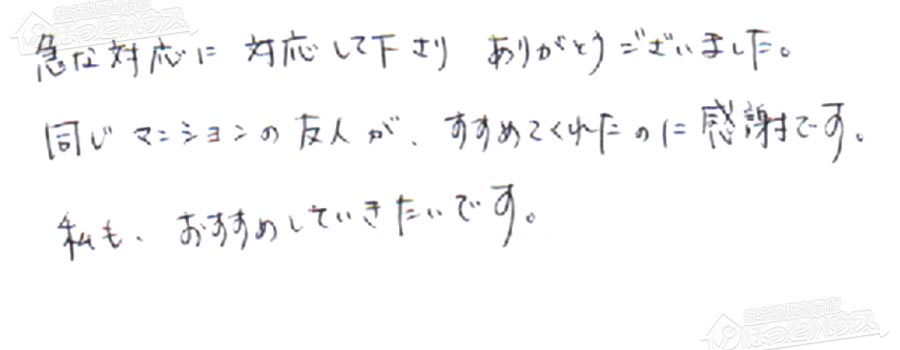 急な対応に 対応して下さり ありがとうございました。
同じマンションの友人が、すすめてくれたのに感謝です。
私も、おすすめしていきたいです。
ほっとハウス
ほっとハウス